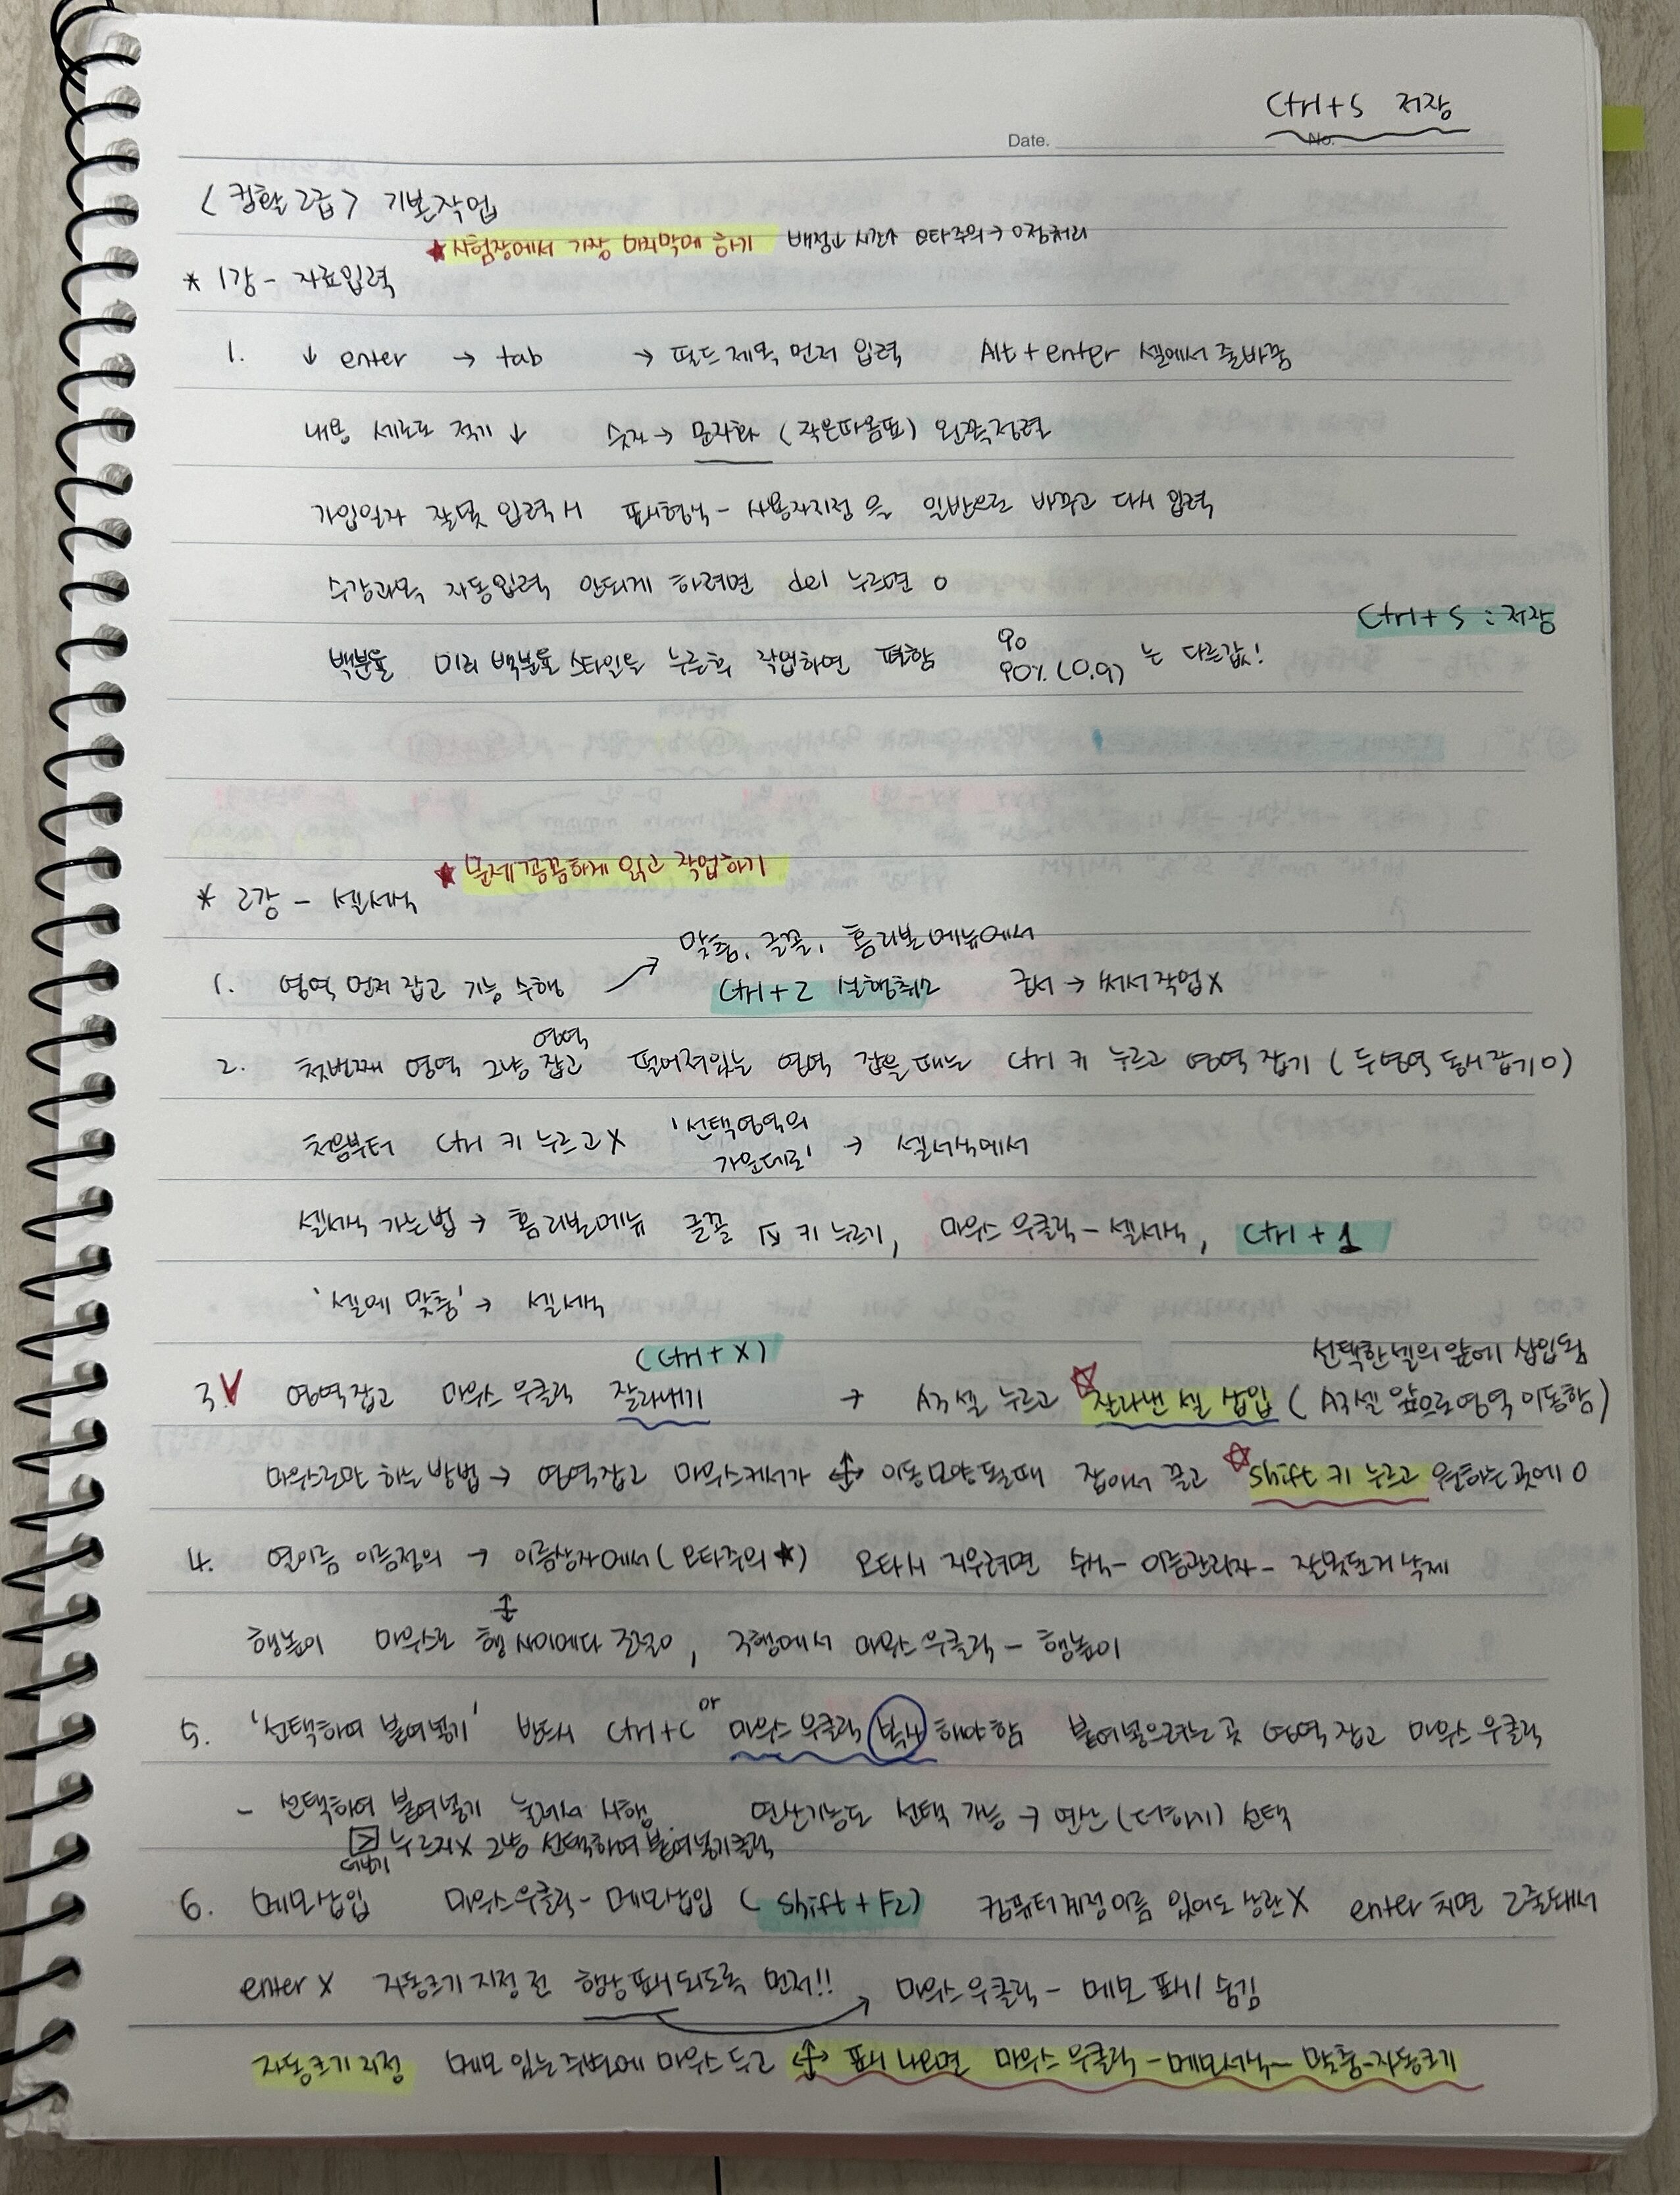 Ctrl+S 저장
Date.
No.
<컴활 2급> 기본작업
★시험장에서 가장 마지막에 하기 배점↓ 시간↑ 오타주의→0점처리
* 1강 - 자료입력
1. ↓ enter → tab → 필드 제목 먼저 입력 Alt + enter 셀에서 줄바꿈
내용 세로로 적기 ↓ 숫자→ 문자화 (작은따옴표) 왼쪽정렬
가입일자 잘못 입력시 표시형식 - 사용자지정 을 일반으로 바꾸고 다시 입력
수강과목 자동입력 안되게 하려면 del 누르면 o
Ctrl + S : 저장
백분율 미리 백분율 스타일을 누른후 작업하면 편함 90 90% (0.9) 는 다른값!
★ 문제꼼꼼하게 읽고 작업하기
* 2강 - 셀서식
맞춤, 글꼴, 홈 리본 메뉴에서
1. 영역 먼저 잡고 기능 수행 Ctrl+Z 실행취소 순서 → 써서작업X
영역
2. 첫번째 영역 그냥 잡고 떨어져있는 영역 잡을 때는 Ctrl 키 누르고 영역 잡기 ( 두영역 동시잡기 o)
처음부터 Ctrl 키 누르고 X '선택영역의 가운데로' → 셀서식에서
셀서식 가는법 → 홈 리본메뉴 글꼴 키 누르기, 마우스 우클릭 - 셀서식, Ctrl + 1
'셀에 맞춤' → 셀서식
(Ctrl + X) 선택한셀의 앞에 삽입됨
3.V 영역잡고 마우스 우클릭 잘라내기 → A3 셀 누르고 ☆잘라낸 셀 삽입 ( A3셀 앞으로 영역 이동함)
마우스로만 하는 방법 → 영역잡고 마우스커서가 이동모양 될때 잡아서 끌고 ☆shift 키 누르고 원하는 곳에 o
4. 열이름 이름정의 → 이름상자에서 ( 오타주의★) 오타시 지우려면 수식 - 이름관리자 - 잘못된거 삭제
행높이 마우스로 행 사이에다 조절이, 3행에서 마우스 우클릭 - 행높이
5. '선택하여 붙여넣기' 반드시 Ctrl+C or 마우스 우클릭 복사 해야함 붙여넣으려는 곳 영역 잡고 마우스 우클릭
- 선택하여 붙여넣기 눌러서 시행 연산기능도 선택 가능 → 연산 (더하기) 선택
누르지X 그냥 선택하여 붙여넣기 클릭
6. 메모삽입 마우스 우클릭 - 메모삽입 ( shift + F2) 컴퓨터계정이름 있어도 상관 X enter 치면 2줄돼서
enter X 자동크기 지정 전 항상 표시 되도록 먼저!! → 마우스 우클릭 - 메모 표시/ 숨김
자동크기 지정 메모 있는 주변에 마우스 두고 표시 나오면 마우스 우클릭 - 메모서식 - 맞춤 - 자동크기